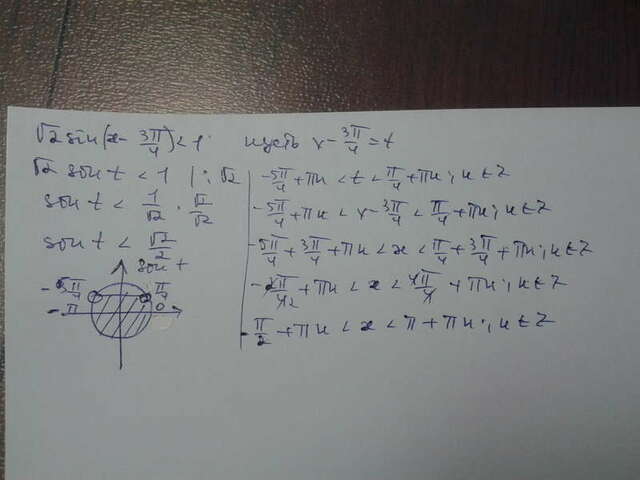 √2 sin(x - 3π/4) < 1
√2 sin t < 1 | : √2
sin t < 1/√2 · √2/√2
sin t < √2/2
sin t
-5π/4 π/4
-π 0
пусть x - 3π/4 = t
-5π/4 + πn < t < π/4 + πn; n ∈ Z
-5π/4 + πn < x - 3π/4 < π/4 + πn; n ∈ Z
-5π/4 + 3π/4 + πn < x < π/4 + 3π/4 + πn; n ∈ Z
-2π/4 2 + πn < x < 4π/4 + πn; n ∈ Z
-π/2 + πn < x < π + πn; n ∈ Z